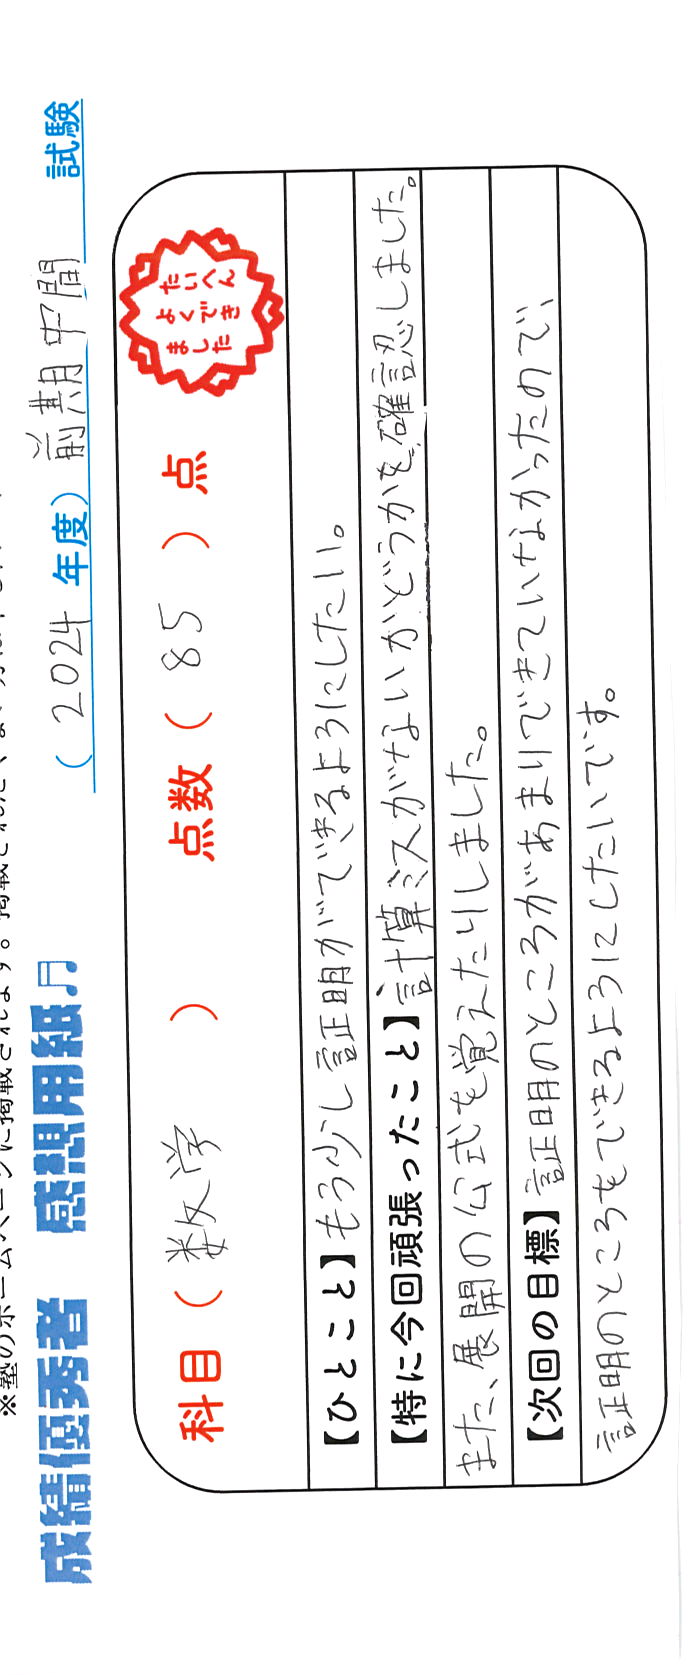 ※塾のホームページに掲載されます。掲載されたくない方は
成績優秀者 感想用紙♫ (2024 年度) 前期中間 試験
科目 ( 数学 ) 点数 ( 85 ) 点
たいへん
よくでき
ました
【ひとこと】もう少し証明ができるようにしたい。
【特に今回頑張ったこと】計算ミスがないかどうかを確認しました。
また、展開の公式を覚えたりしました。
【次回の目標】証明のところがあまりできていなかったので、
証明のところもできるようにしたいです。